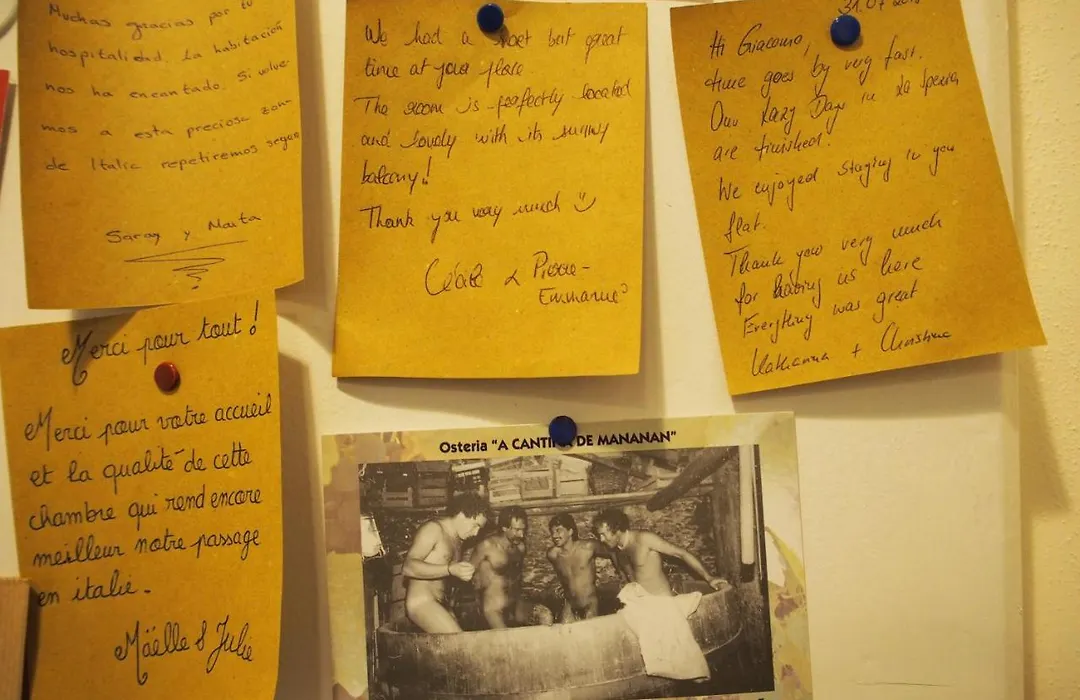 Muchas gracias por tu
hospitalidad. La habitación
nos ha encantado. Si volve-
mos a esta preciosa zona
de Italia repetiremos segur
Saray y Marta
We had a short but great
time at your place
The room is perfectly located
and lovely with its sunny
balcony!
Thank you very much
Cécile & Pierre-
Emmanuel
31.07
Hi Giacomo,
time goes by very fast.
Our Lazy Days in La Spezia
are finished!
We enjoyed staying in you
flat.
Thank you very much
for having us here
Everything was great
Katharina + Christine
Merci pour tout !
Merci pour votre accueil
et la qualité de cette
chambre qui rend encore
meilleur notre passage
en italie.
Maëlle & Julie
Osteria "A CANTINA DE MANANAN"